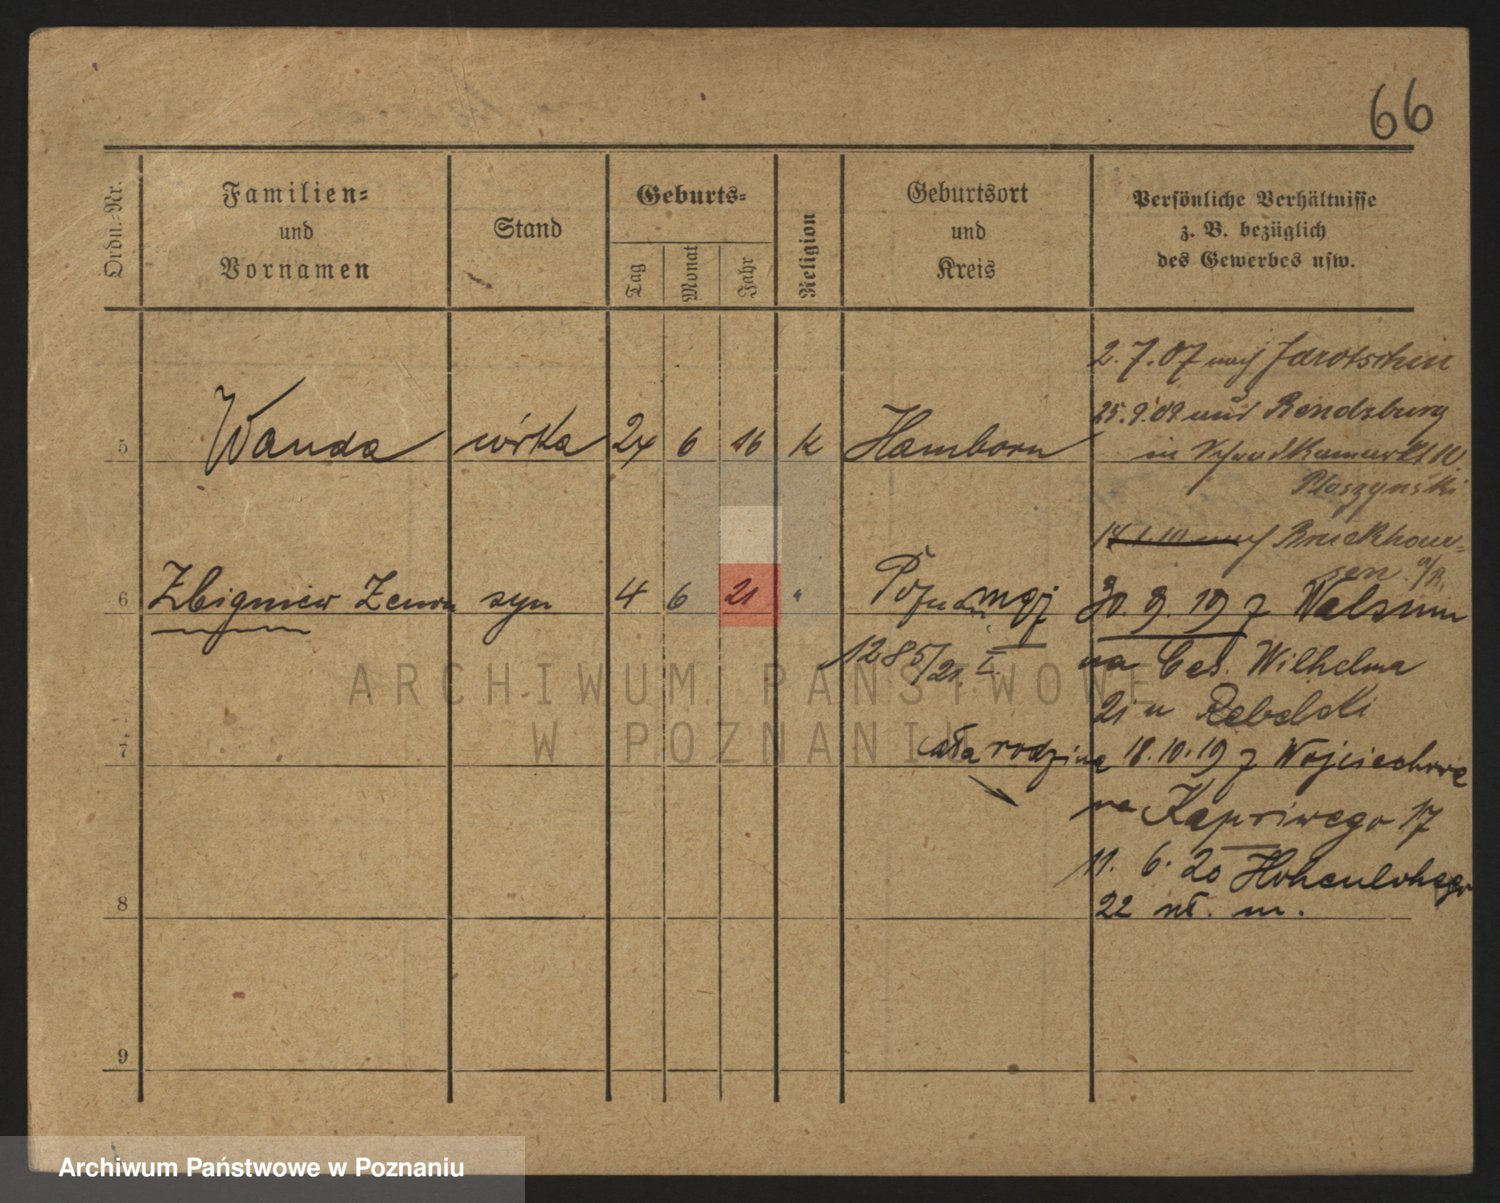 66
Ordn.-Nr.
Familien-
und
Vornamen
Stand
Geburts-
Tag
Monat
Jahr
Religion
Geburtsort
und
Kreis
Persönliche Verhältnisse
z. B. bezüglich
des Gewerbes usw.
2.7.07 nach Jarotschin
25.9.09 aus Rendzburg
5 Wanda córka 24 6 16 k Hamborn
in
Ptaszynski
14.1.10 Bruckhau-
sen a/R.
6 Zbigniew Zenon syn 4 6 21 " Posen mgj 30.9.19 z Walsum
1285/21. I. na Ces. Wilhelma
21 u Rebelski
7 cała rodzina 18.10.19 z Wojciechowa
na Kapriwego 17
11. 6. 20 Hohenlohego
8 22 wł. m.
9
ARCHIWUM PAŃSTWOWE
W POZNANIU
Archiwum Państwowe w Poznaniu